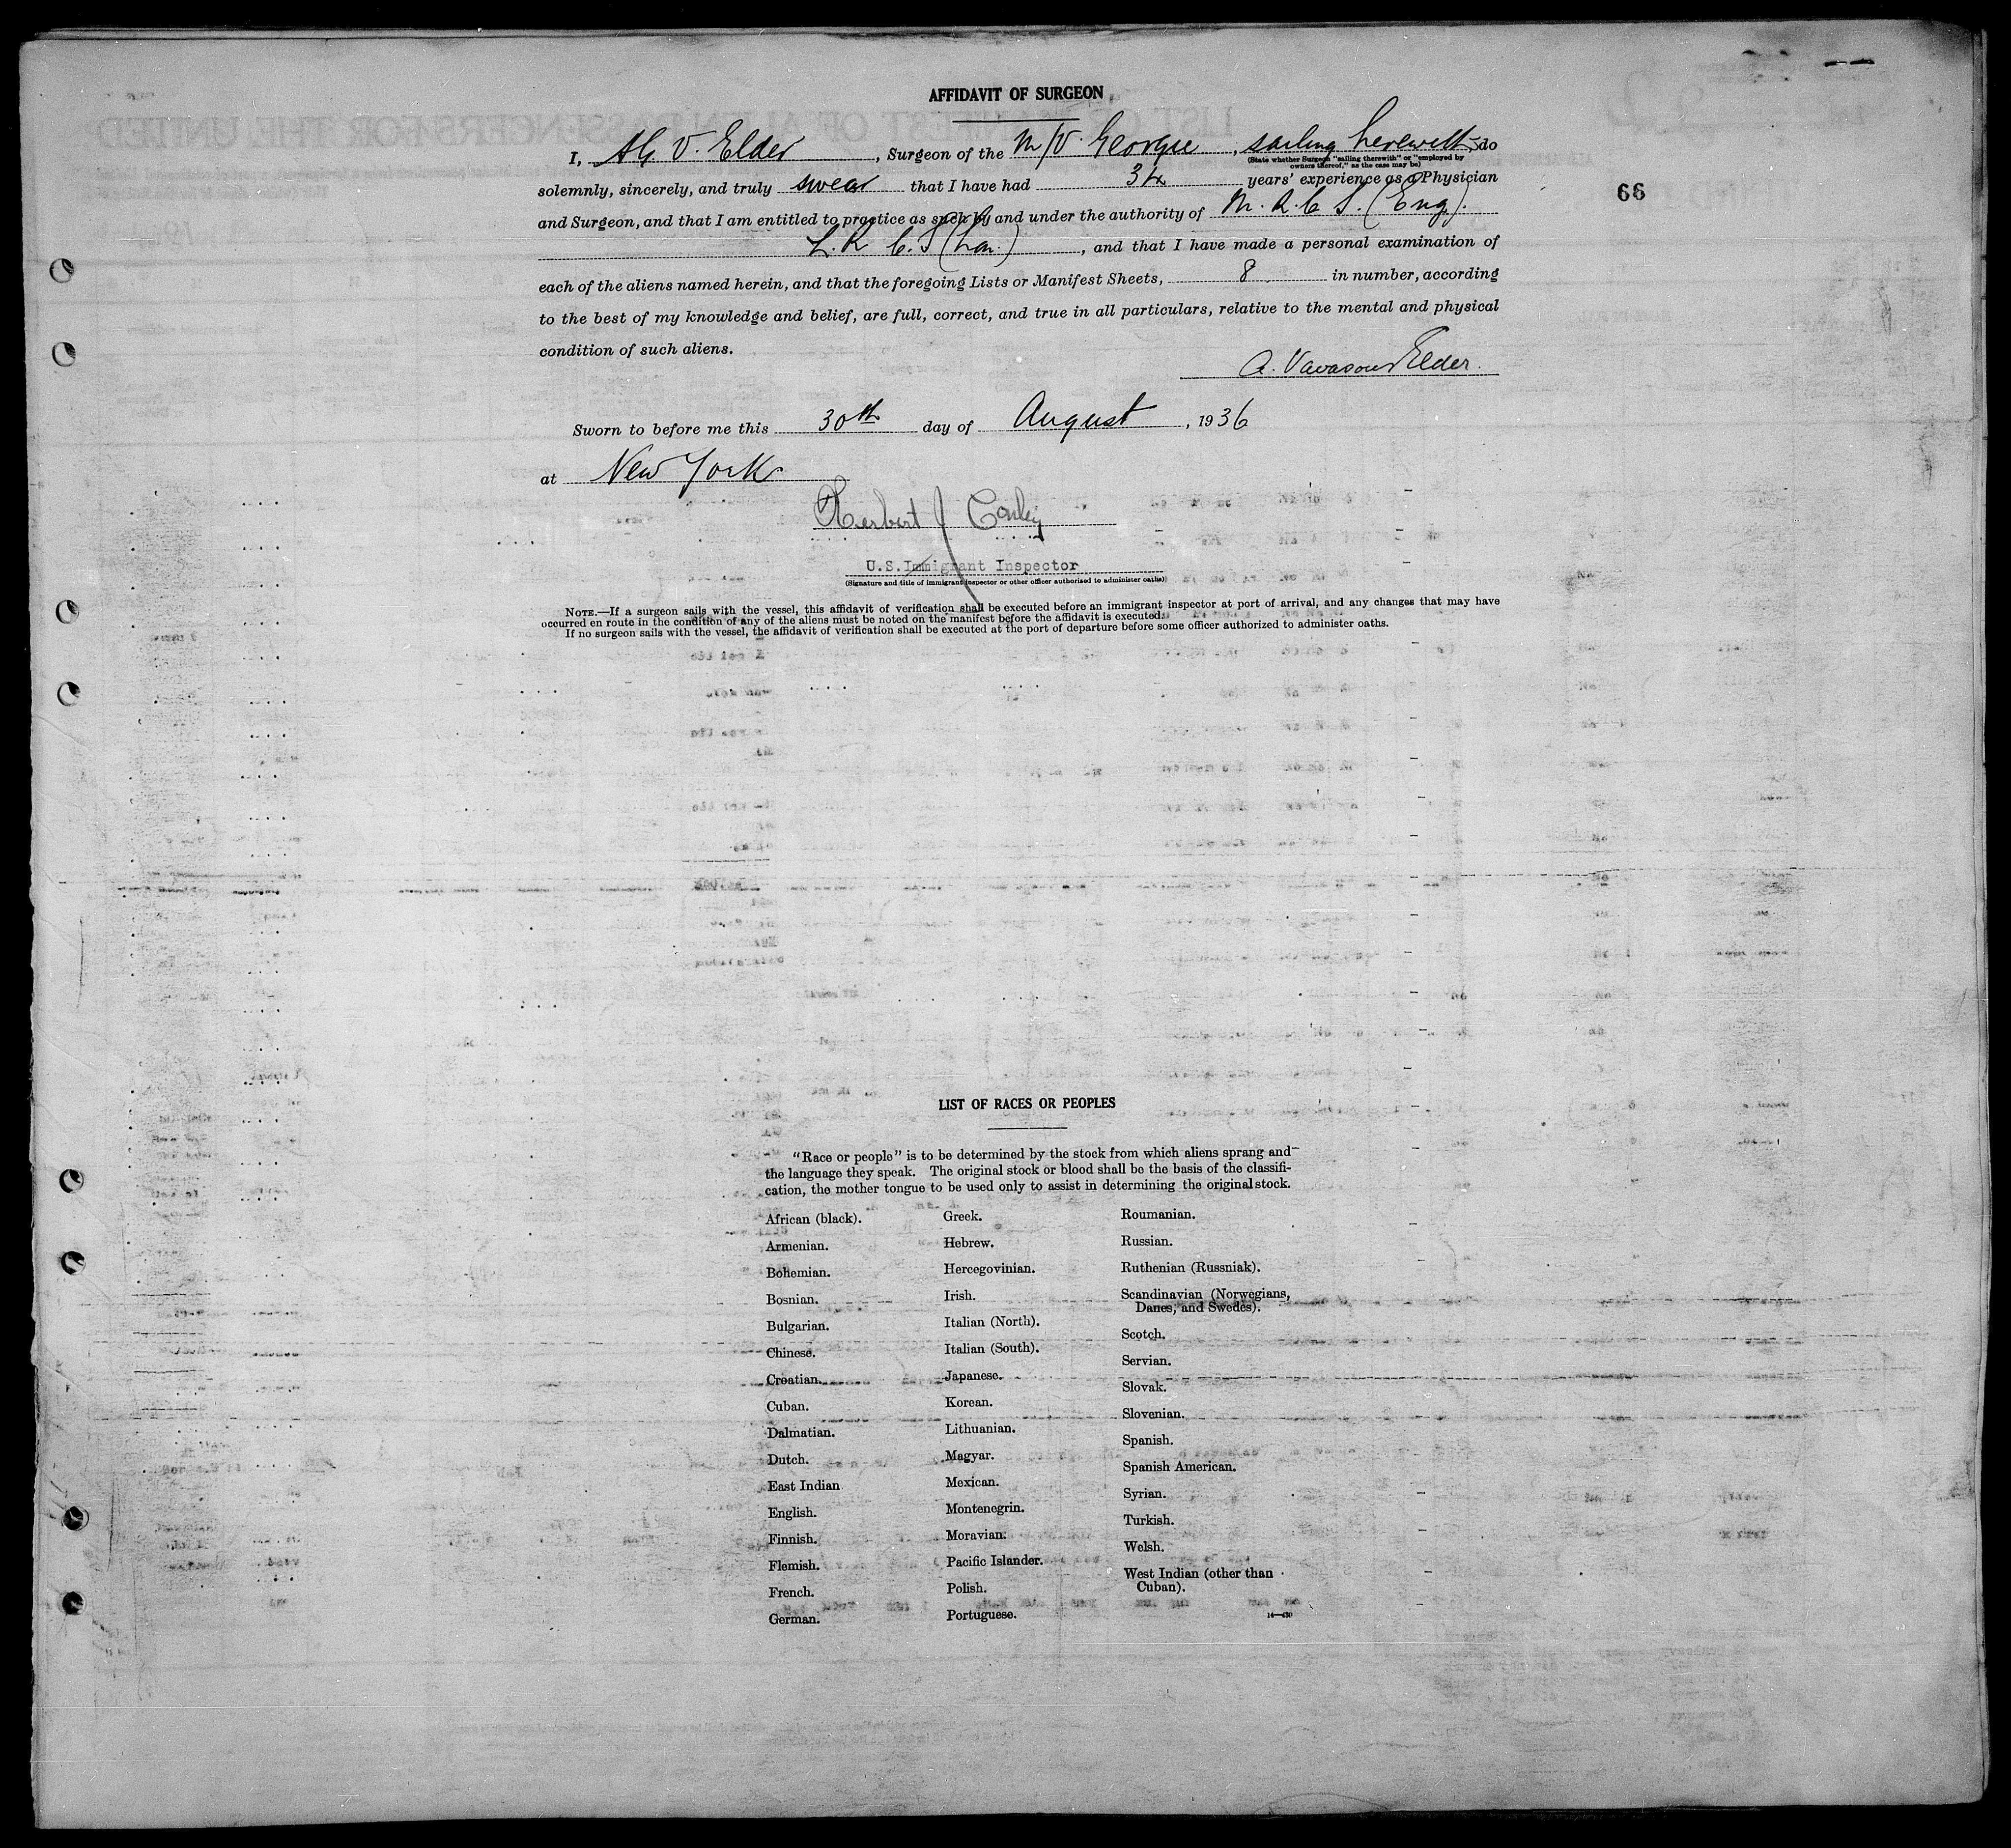 AFFIDAVIT OF SURGEON
I, A. G. V. Elder, Surgeon of the M/V. Georgic, sailing herewith, do
(State whether Surgeon "sailing therewith" or "employed by
owners thereof," as the case may be)
solemnly, sincerely, and truly swear that I have had 34 years' experience as a Physician
66
and Surgeon, and that I am entitled to practice as such by and under the authority of M. R. C. S. (Eng).
L. R. C. S (Lon.), and that I have made a personal examination of
each of the aliens named herein, and that the foregoing Lists or Manifest Sheets, 8. in number, according
to the best of my knowledge and belief, are full, correct, and true in all particulars, relative to the mental and physical
condition of such aliens.
A. Vavasour Elder.
Sworn to before me this 30th day of August, 1936
at New York
Herbert J Conley
U.S.Immigrant Inspector
(Signature and title of immigrant inspector or other officer authorized to administer oaths)
NOTE.—If a surgeon sails with the vessel, this affidavit of verification shall be executed before an immigrant inspector at port of arrival, and any changes that may have
occurred en route in the condition of any of the aliens must be noted on the manifest before the affidavit is executed.
If no surgeon sails with the vessel, the affidavit of verification shall be executed at the port of departure before some officer authorized to administer oaths.
LIST OF RACES OR PEOPLES
"Race or people" is to be determined by the stock from which aliens sprang and
the language they speak. The original stock or blood shall be the basis of the classifi-
cation, the mother tongue to be used only to assist in determining the original stock.
African (black).
Armenian.
Bohemian.
Bosnian.
Bulgarian.
Chinese.
Croatian.
Cuban.
Dalmatian.
Dutch.
East Indian
English.
Finnish.
Flemish.
French.
German.
Greek.
Hebrew.
Hercegovinian.
Irish.
Italian (North).
Italian (South).
Japanese.
Korean.
Lithuanian.
Magyar.
Mexican.
Montenegrin.
Moravian.
Pacific Islander.
Polish.
Portuguese.
Roumanian.
Russian.
Ruthenian (Russniak).
Scandinavian (Norwegians,
Danes, and Swedes).
Scotch.
Servian.
Slovak.
Slovenian.
Spanish.
Spanish American.
Syrian.
Turkish.
Welsh.
West Indian (other than
Cuban).
14—430